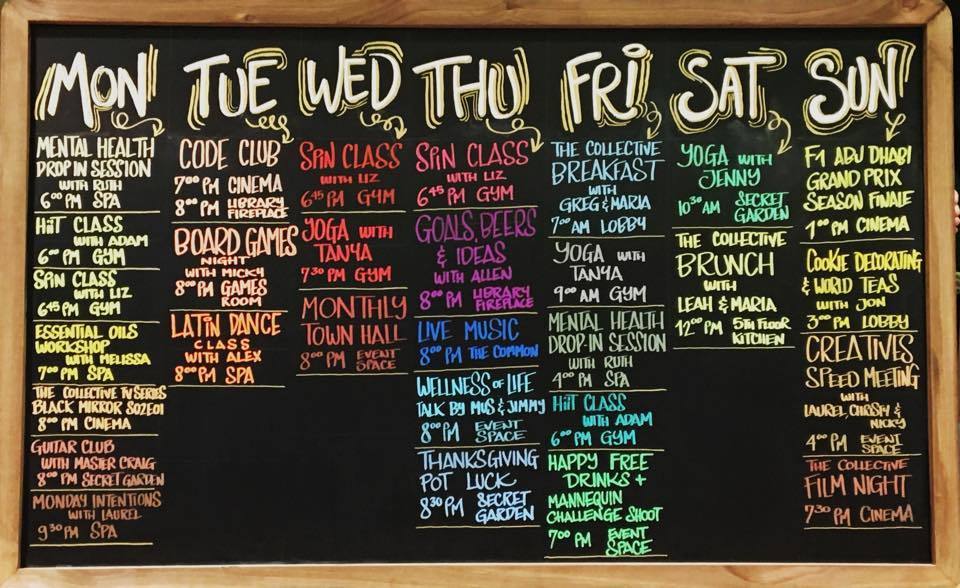 MON
MENTAL HEALTH
DROP IN SESSION
WITH RUTH
6:00 PM SPA
HiiT CLASS
WITH ADAM
6:00 PM GYM
SPiN CLASS
WITH LIZ
6:45 PM GYM
ESSENTIAL OILS
WORKSHOP
WITH MELISSA
7:00 PM SPA
THE COLLECTIVE TV SERIES
BLACK MIRROR S02E01
8:00 PM CINEMA
GUITAR CLUB
WITH MASTER CRAIG
8:00 PM SECRET GARDEN
MONDAY INTENTIONS
WITH LAUREL
9:30 PM SPA
TUE
CODE CLUB
7:00 PM CINEMA
8:00 PM LIBRARY
FIREPLACE
BOARD GAMES
NIGHT
WITH MICKY
8:00 PM GAMES
ROOM
LATiN DANCE
CLASS
WITH ALEX
8:00 PM SPA
WED
SPiN CLASS
WITH LIZ
6:45 PM GYM
YOGA WITH
TANYA
7:30 PM GYM
MONTHLY
TOWN HALL
8:00 PM EVENT
SPACE
THU
SPiN CLASS
WITH LIZ
6:45 PM GYM
GOALS, BEERS
& IDEAS
WITH ALLEN
8:00 PM LIBRARY
FIREPLACE
LIVE MUSIC
8:00 PM THE COMMON
WELLNESS OF LIFE
TALK BY MUS & JIMMY
8:00 PM EVENT
SPACE
THANKSGIVING
POT LUCK
8:30 PM SECRET
GARDEN
FRi
THE COLLECTIVE
BREAKFAST
WITH
GREG & MARIA
7:00 AM LOBBY
YOGA WITH
TANYA
9:00 AM GYM
MENTAL HEALTH
DROP-IN SESSION
WITH RUTH
4:00 PM SPA
HiiT CLASS
WITH ADAM
6:00 PM GYM
HAPPY FREE
DRINKS +
MANNEQUIN
CHALLENGE SHOOT
7:00 PM EVENT
SPACE
SAT
YOGA WITH
JENNY
10:30 AM SECRET
GARDEN
THE COLLECTIVE
BRUNCH
WITH
LEAH & MARIA
12:00 PM 5TH FLOOR
KITCHEN
SUN
F1 ABU DHABI
GRAND PRIX
SEASON FINALE
1:00 PM CINEMA
COOKIE DECORATING
& WORLD TEAS
WITH JON
3:00 PM LOBBY
CREATIVES
SPEED MEETING
WITH
LAUREL, CHRISTY &
NICKY
4:00 PM EVENT
SPACE
THE COLLECTIVE
FILM NIGHT
7:30 PM CINEMA